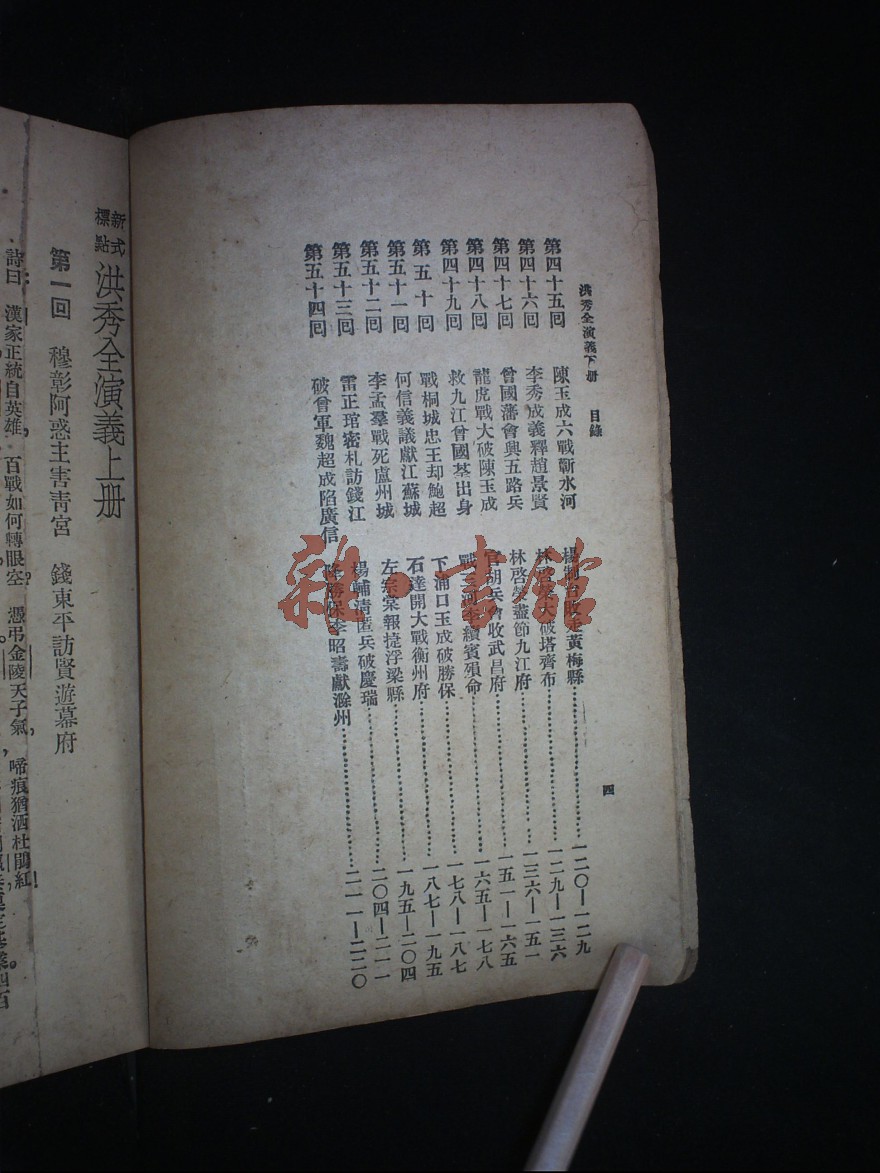 洪秀全演義下册 目錄 四
第四十五囘 陳玉成六戰蘄水河 楊制台敗走黃梅縣 一二〇—一二九
第四十六囘 李秀成義釋趙景賢 林啓榮大破塔齊布 一二九—一三六
第四十七囘 曾國藩會興五路兵 林啓榮盡節九江府 一三六—一五一
第四十八囘 龍虎戰大破陳玉成 官胡兵會收武昌府 一五一—一六五
第四十九囘 救九江曾國荃出身 戰三河李續賓殞命 一六五—一七八
第五十囘 戰桐城忠王却鮑超 下浦口玉成破勝保 一七八—一八七
第五十一囘 何信義議獻江蘇城 石達開大戰衡州府 一八七—一九五
第五十二囘 李孟羣戰死盧州城 左宗棠報捷浮梁縣 一九五—二〇四
第五十三囘 雷正琯密札訪錢江 楊輔清匿兵破慶瑞 二〇四—二一一
第五十四囘 破曾軍魏超成陷廣信 勝保李昭壽獻滁州 二一一—二二〇
新式標點 洪秀全演義上册
第一回 穆彰阿惑主害靑宮 錢東平訪賢遊幕府
詩曰 漢家正統自英雄，百戰如何轉眼空。憑弔金陵天子氣，啼痕猶洒杜鵑紅
雜·書館